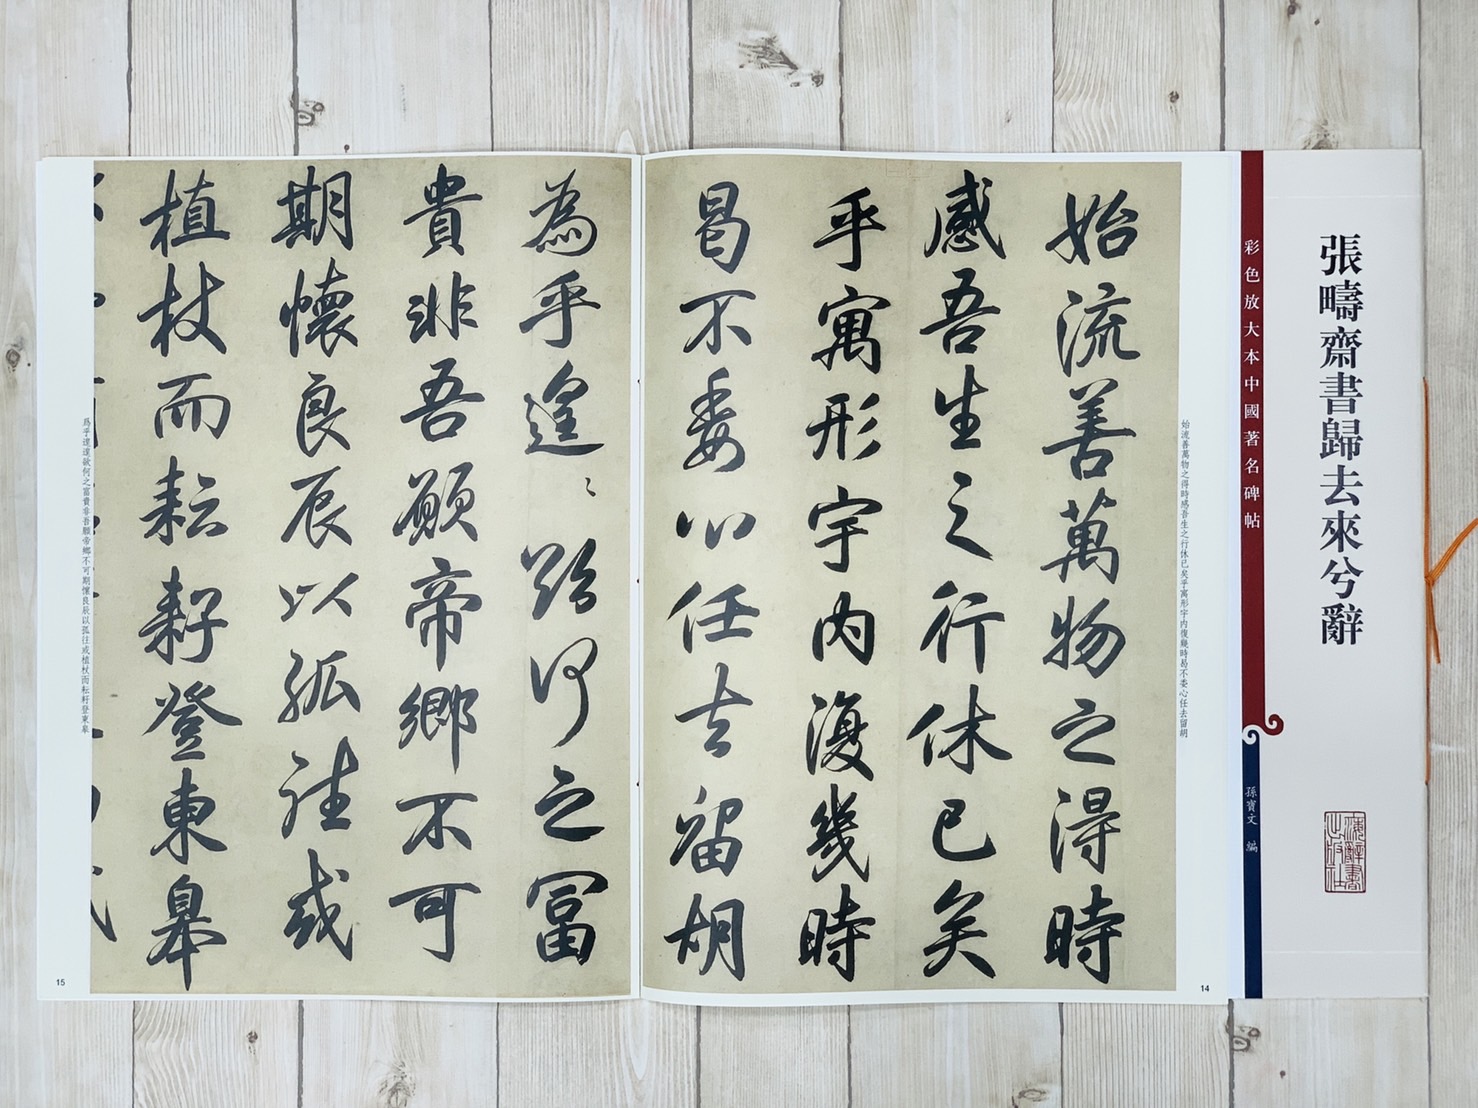 張疇齋書歸去來兮辭
上海辭書出版社
彩色放大本中國著名碑帖
孫寶文 編
始流善萬物之得時感吾生之行休已矣乎寓形宇内復幾時曷不委心任去留胡
始流善萬物之得時
感吾生之行休已矣
乎寓形宇内復幾時
曷不委心任去留胡
14
為乎遑〻欲何之富
貴非吾願帝鄉不可
期懷良辰以孤往或
植杖而耘耔登東皋
爲乎遑遑欲何之富貴非吾願帝鄉不可期懷良辰以孤往或植杖而耘耔登東皋
15